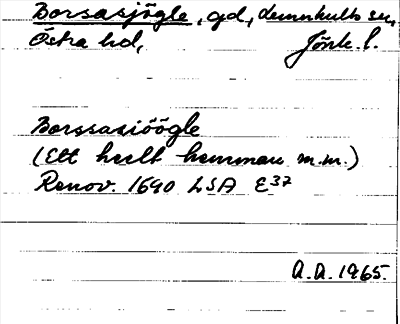 Borsasjögle, gd, Lemnhults sn,
Östra hd, Jönk. l.
Borssasiöögle
(Ett heelt hemman m.m.)
Renov. 1690 LSA E37
A.A. 1965.